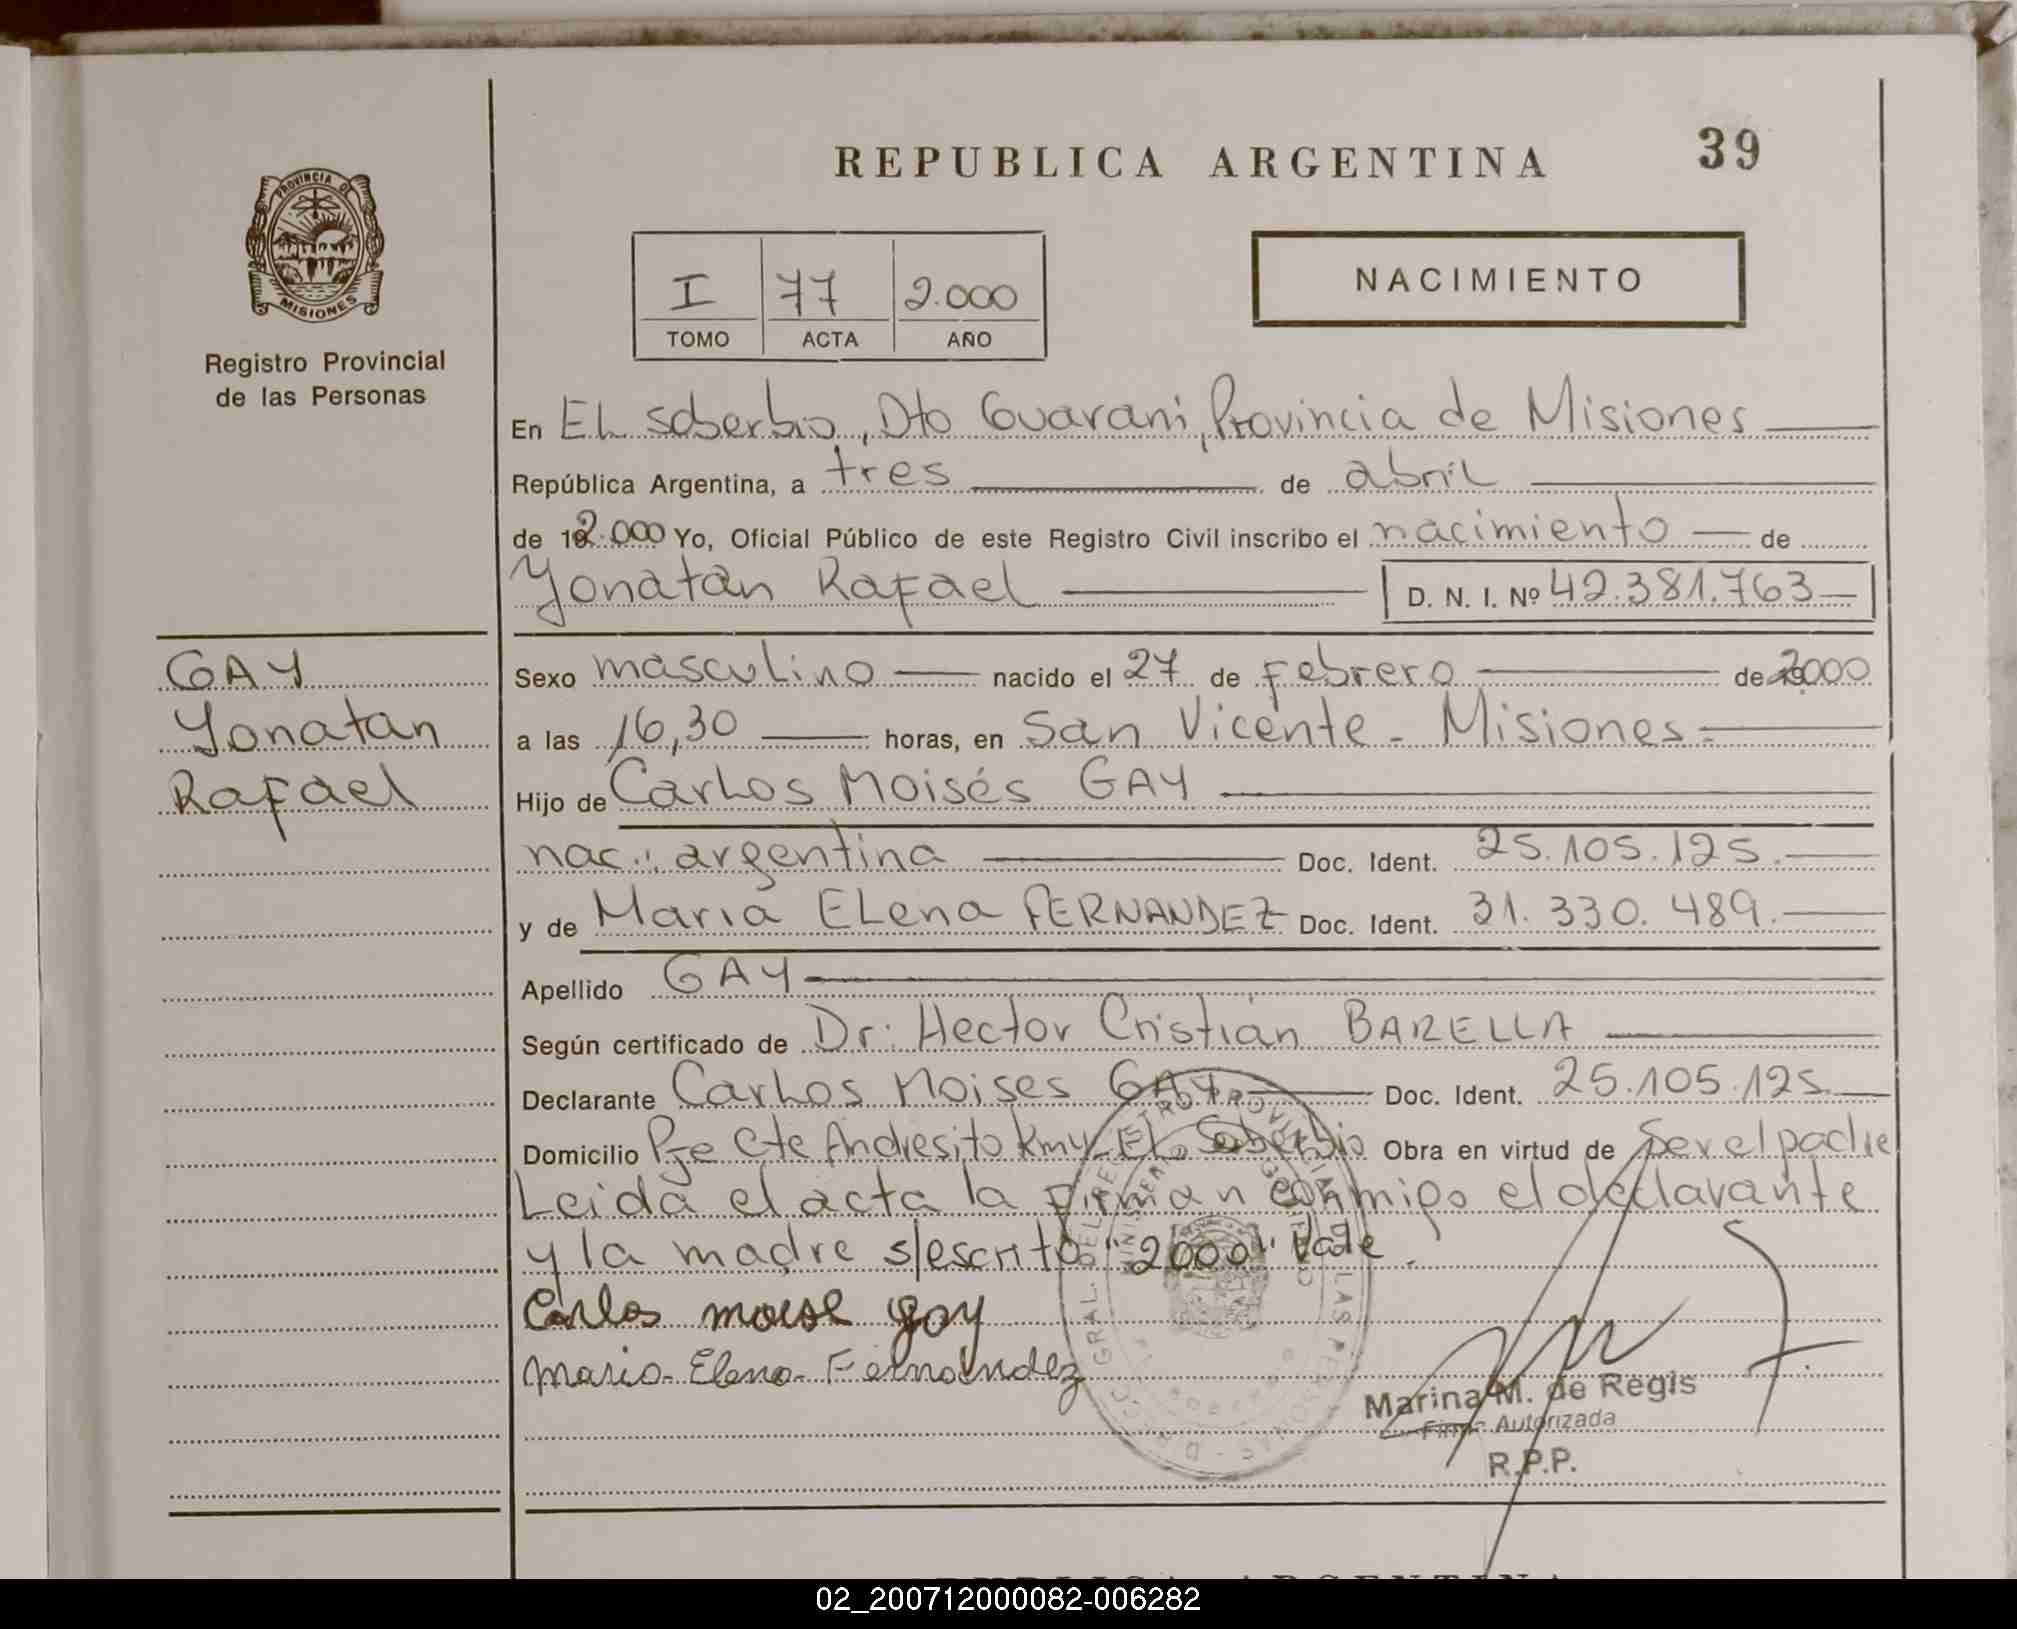 REPUBLICA ARGENTINA
39
PROVINCIA DE
MISIONES
Registro Provincial
de las Personas
I 77 2.000
TOMO ACTA AÑO
NACIMIENTO
En EL Soberbio, Dto Guaraní, Provincia de Misiones
República Argentina, a tres de abril
de 2.000 Yo, Oficial Público de este Registro Civil inscribo el nacimiento de
Yonatan Rafael D. N. I. Nº 42.381.763
GAY
Yonatan
Rafael
Sexo masculino nacido el 27 de Febrero de 2000
a las 16,30 horas, en San Vicente - Misiones -
Hijo de Carlos Moisés GAY
nac.: argentina Doc. Ident. 25.105.125.
y de Maria Elena FERNANDEZ Doc. Ident. 31.330.489.
Apellido GAY
Según certificado de Dr: Hector Cristian BARELLA
Declarante Carlos Moises GAY Doc. Ident. 25.105.125.
Domicilio Pje Cte Andresito El Soberbio Obra en virtud de Ser el padre
Leida el acta la firman conmigo el declarante
y la madre s/escrito "2000" Vale.
Carlos moise gay
Maria Elena Fernández
Marina M. de Regis
Firma Autorizada
R.P.P.
REPUBLICA ARGENTINA
02_200712000082-006282